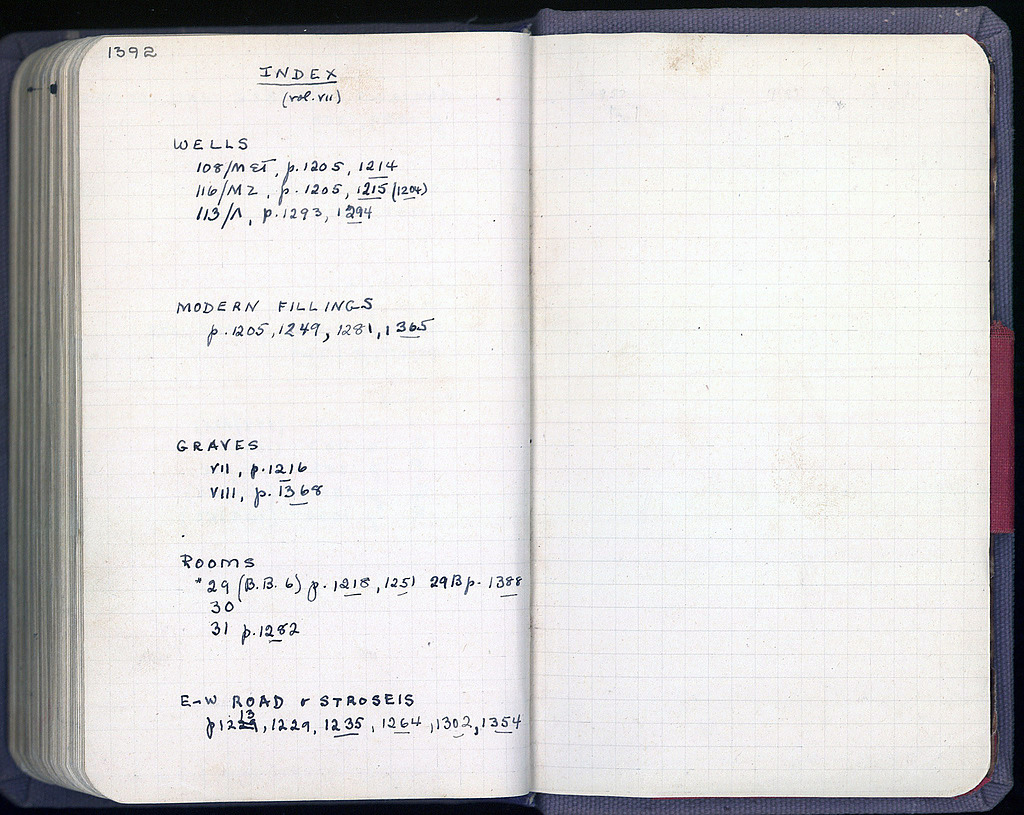 1392
INDEX
(vol. VII)
WELLS
108/ΜΣΤ, p. 1205, 1214
116/ΜΖ, p. 1205, 1215 (1204)
113/Λ, p. 1293, 1294
MODERN FILLINGS
p. 1205, 1249, 1281, 1365
GRAVES
VII, p. 1216
VIII, p. 1368
ROOMS
* 29 (B.B. 6) p. 1218, 1251 29B p. 1388
30
31 p. 1282
E-W ROAD & STROSEIS
13
p, 1229, 1235, 1264, 1302, 1354